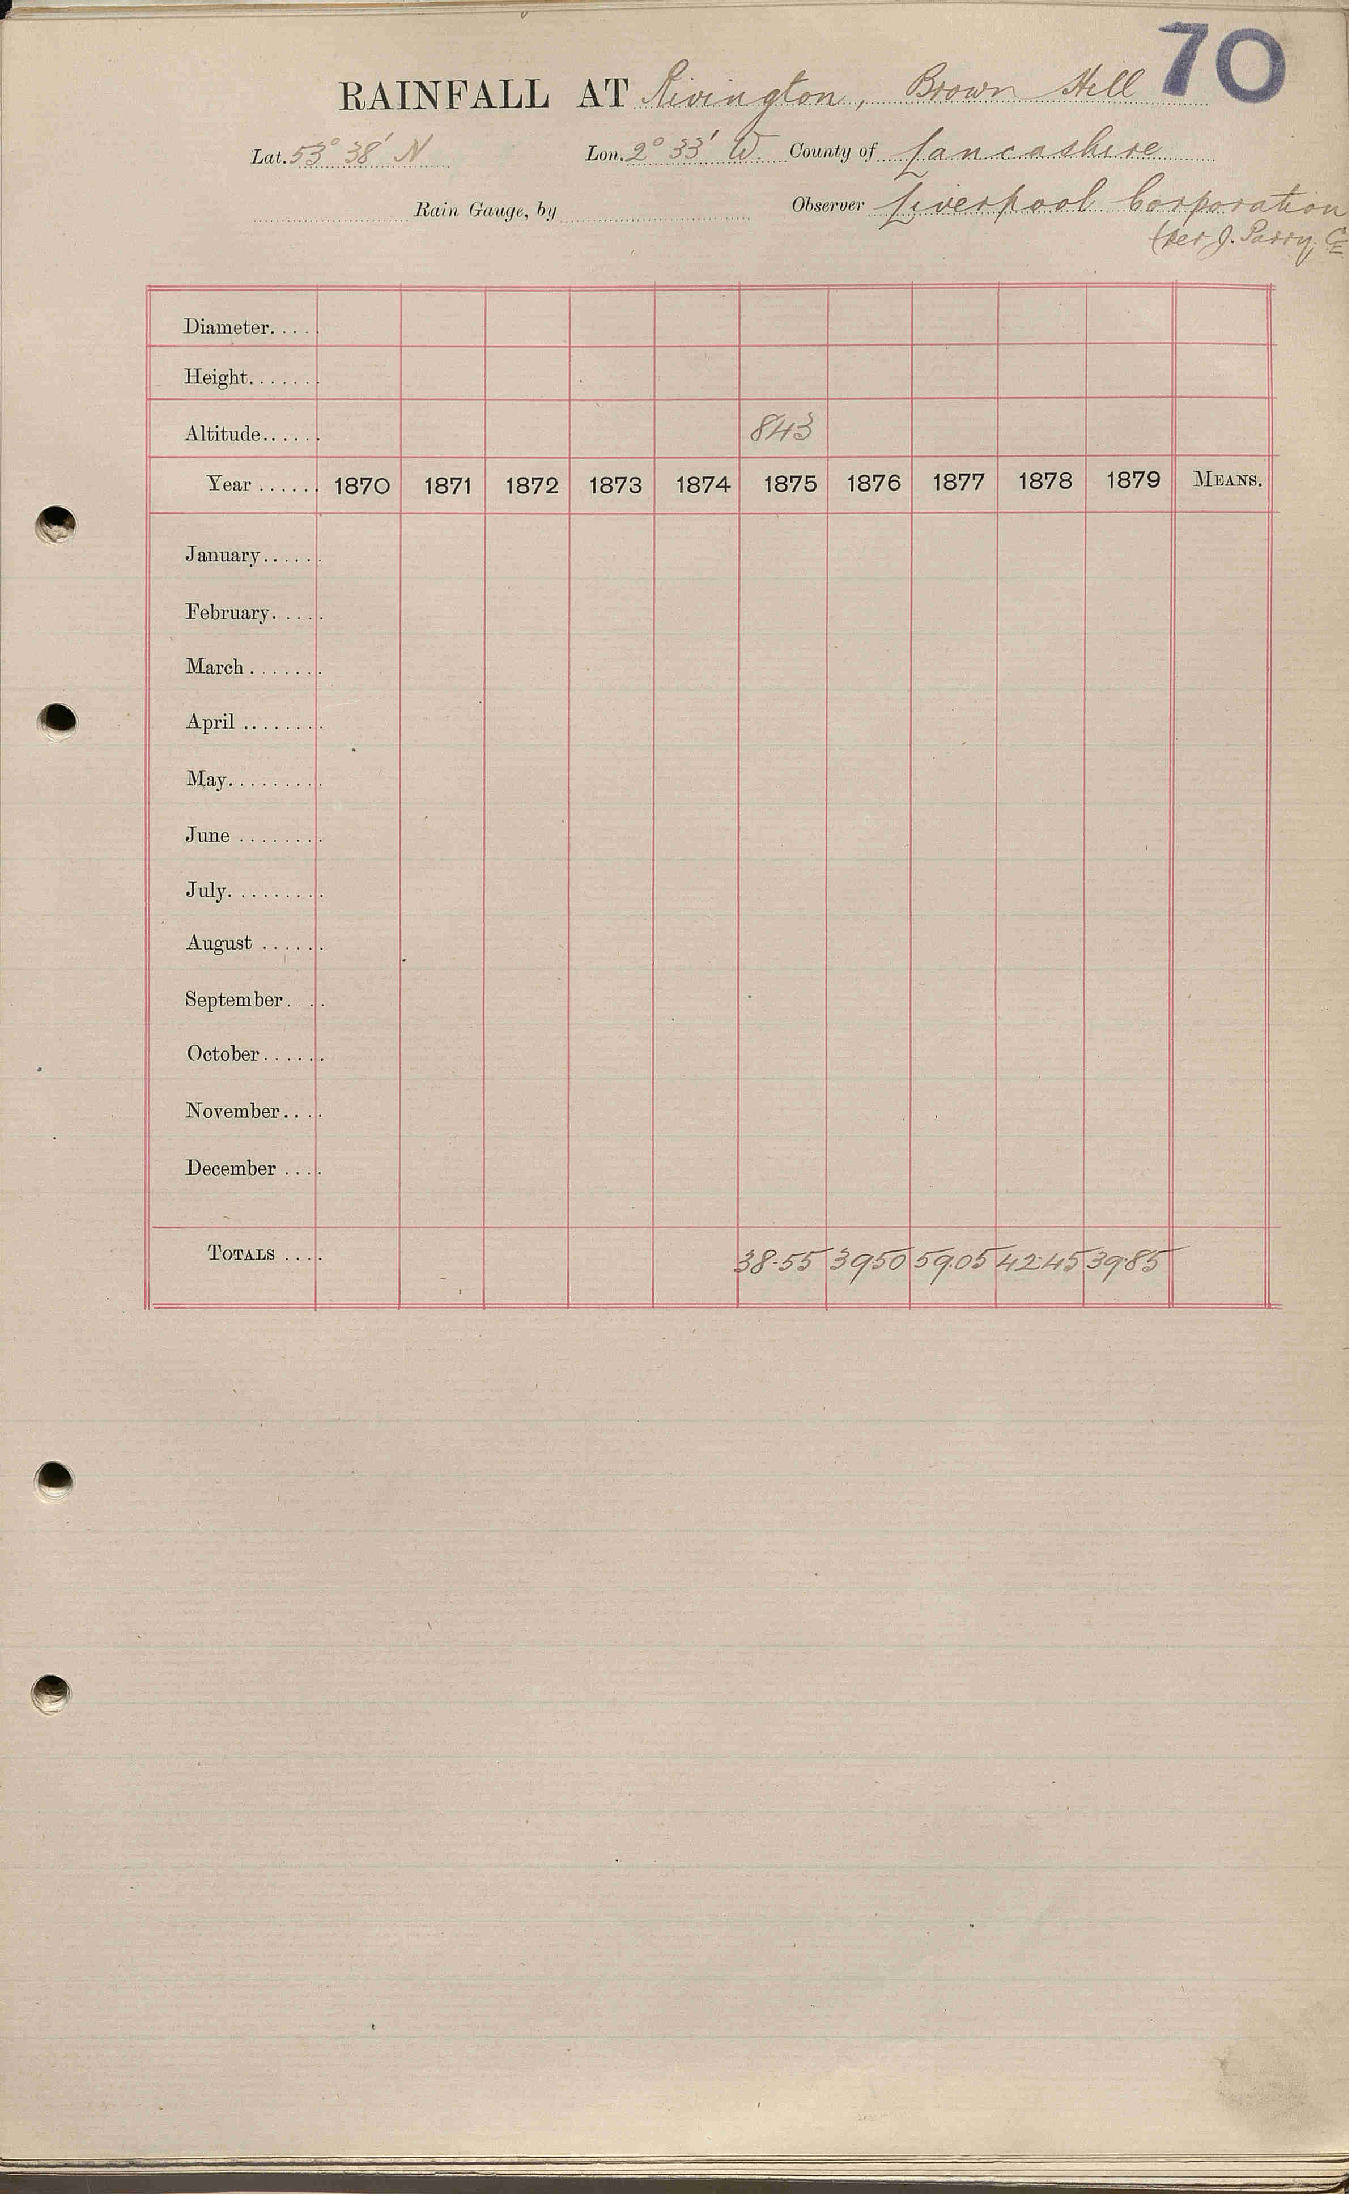 70
RAINFALL AT Rivington, Brown Hill
Lat. 53° 38' N Lon. 2° 33' W. County of Lancashire
Rain Gauge, by Observer Liverpool Corporation
(per J. Parry, CE
Diameter.....
Height.......
Altitude...... 843
Year ...... 1870 1871 1872 1873 1874 1875 1876 1877 1878 1879 MEANS.
January......
February.....
March.......
April ........
May.........
June ........
July.........
August ......
September. ..
October......
November....
December ....
TOTALS .... 38.55 3950 59.05 42.45 39.85